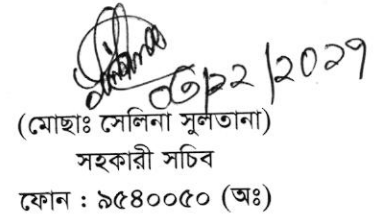 ০৫/১২/২০২১
(মোছাঃ সেলিনা সুলতানা)
সহকারী সচিব
ফোন : ৯৫৪০০৫০ (অঃ)